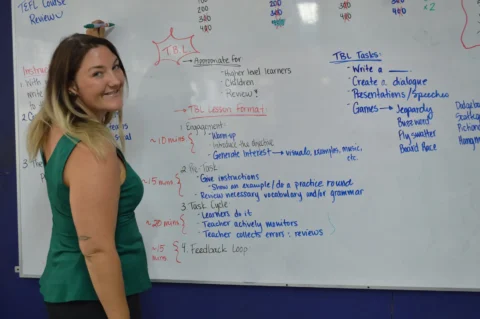 TEFL Course
Review
200
300
400
200
300
400
200
300
400
200
300
400
x2
TBL
→ Appropriate for
- Higher level learners
- Children
- Review!
→ TBL Lesson Format:
1. Engagement:
~10 mins
- Warm-up
- Introduce the objective
- Generate Interest → visuals, examples, music, etc.
2. Pre-Task
~15 mins
- Give instructions
- Show an example/do a practice round
- Review necessary vocabulary and/or grammar
3. Task Cycle
~20 mins
- Learners do it
- Teacher actively monitors
- Teacher collects errors : reviews
~15 mins.
4. Feedback Loop
TBL Tasks:
- Write a
- Create a dialogue
- Presentations/Speeches
- Games → Jeopardy
Buzzword
Fly swatter
Board Race